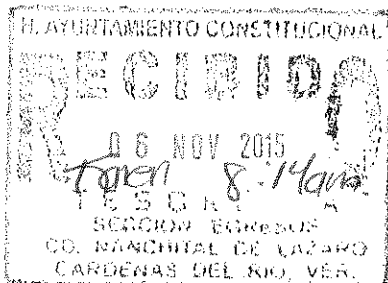 H. AYUNTAMIENTO CONSTITUCIONAL
RECIBIDO
06 NOV 2015
8:14am
SECCION EGRESOS
CD. NANCHITAL DE LAZARO
CARDENAS DEL RIO, VER.